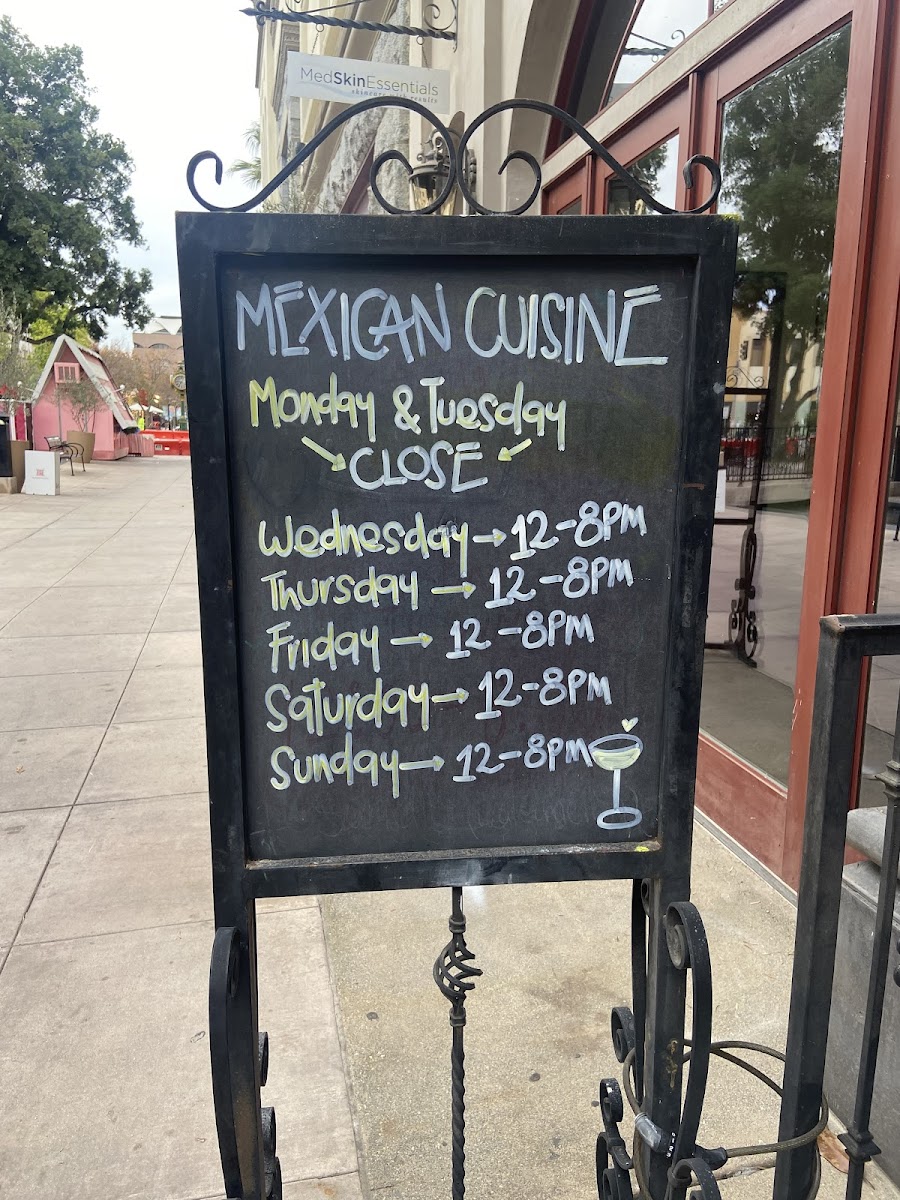 MedSkinEssentials
skincare with results
MEXICAN CUISINE
Monday & Tuesday
CLOSE
Wednesday → 12-8PM
Thursday → 12-8PM
Friday → 12-8PM
Saturday → 12-8PM
Sunday → 12-8PM